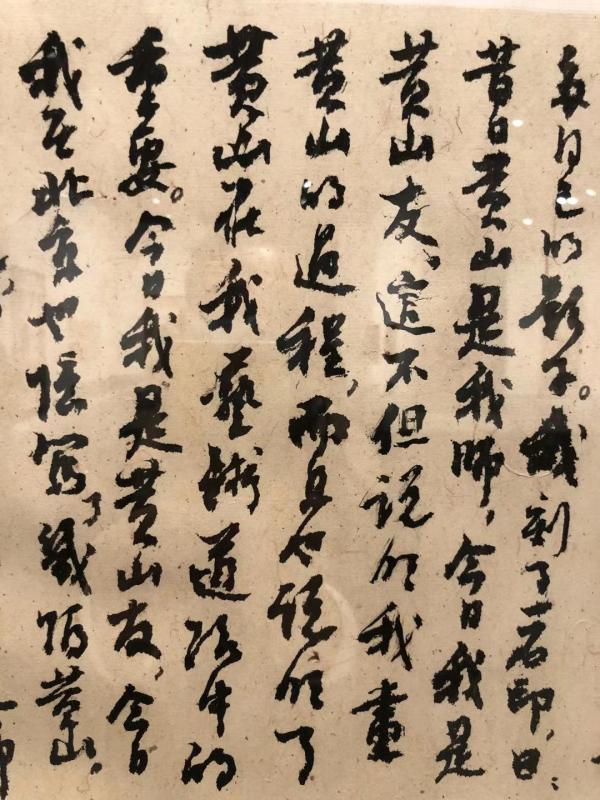 有自己的影子。我刻了一石印,曰:
昔日黄山是我师,今日我是
黄山友,這不但说明我畫
黄山的過程,而且也说明了
黄山在我藝術道路中的
重要。今日我是黄山友,今日
我在北京也寫了幾黄山,